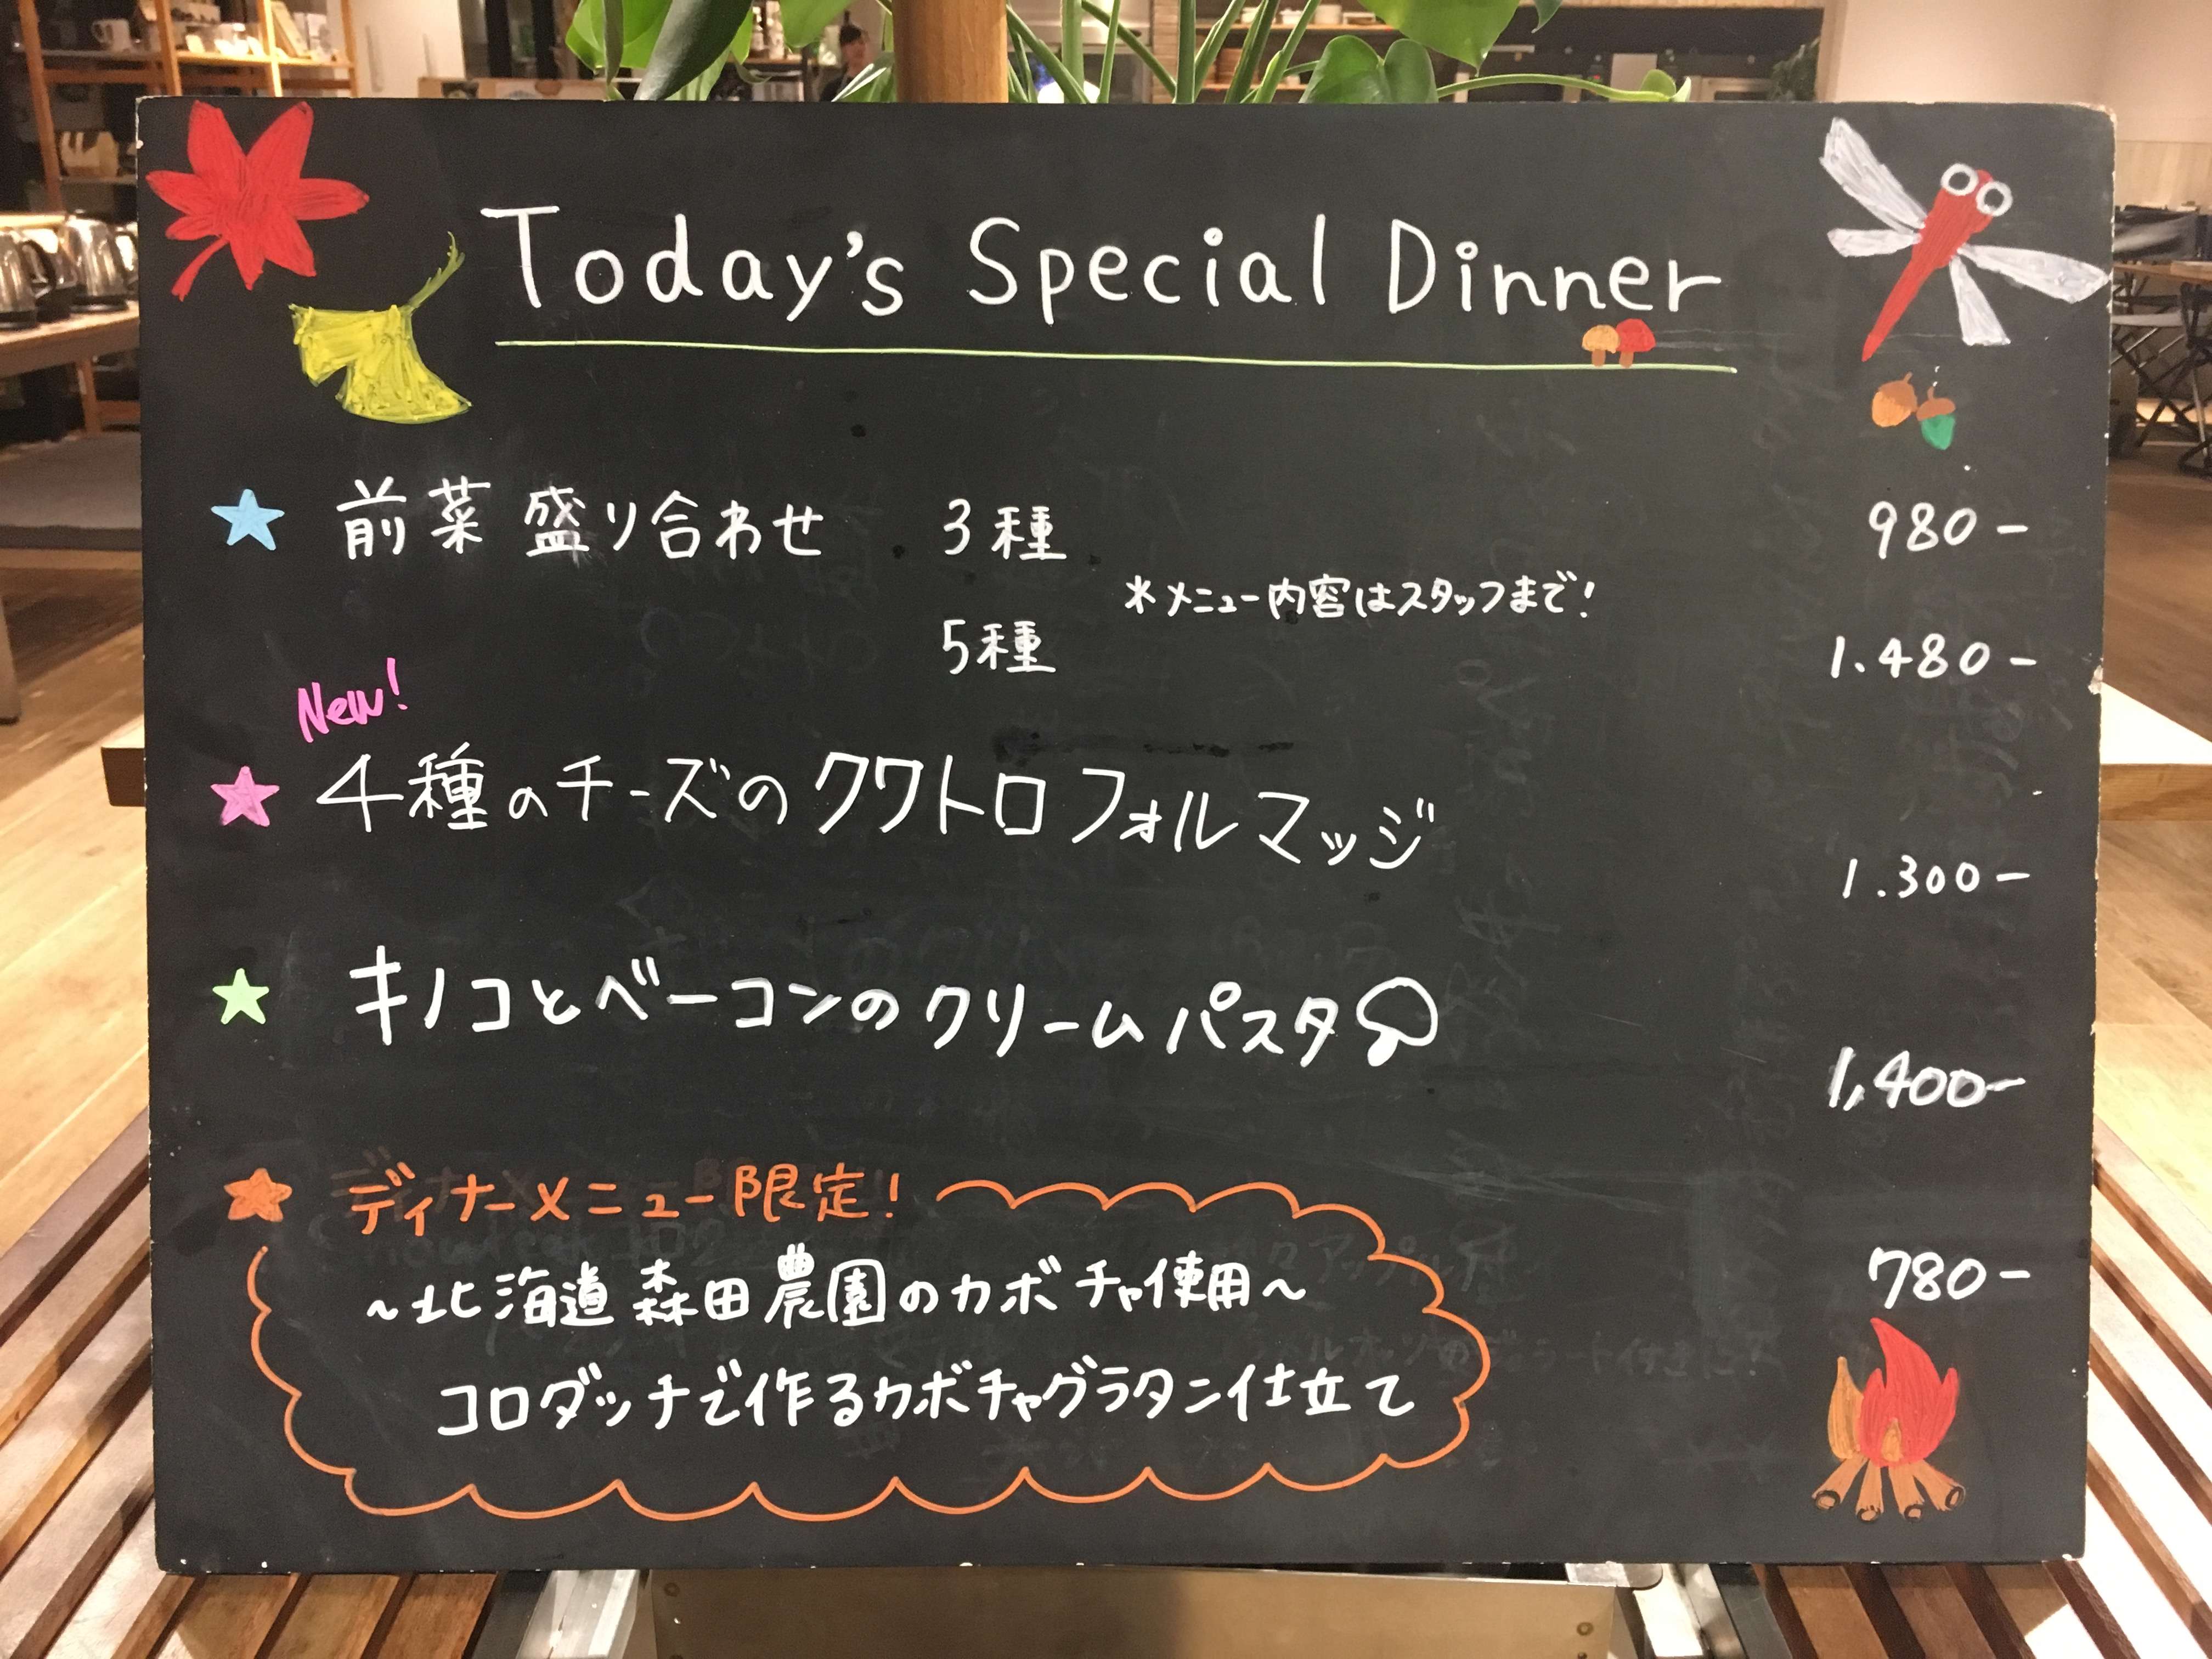 Today's Special Dinner
★ 前菜 盛り合わせ 3種 980-
*メニュー内容はスタッフまで!
5種 1.480-
New!
★ 4種のチーズのクワトロフォルマッジ
1.300-
★ キノコとベーコンのクリームパスタ
1,400-
★ ディナーメニュー限定!
~北海道 森田農園のカボチャ使用~ 780-
コロダッチで作るカボチャグラタン仕立て